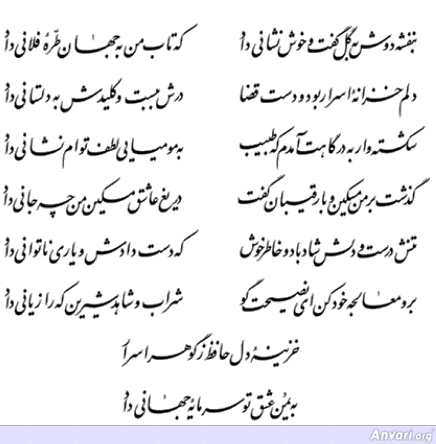 بنفشه دوش به گل گفت و خوش نشانی داد که تاب من به جهان طرّهٔ فلانی داد
دلم خزانهٔ اسرار بود و دست قضا درش ببست و کلیدش به دلستانی داد
شکسته وار به درگاهت آمدم که طبیب به مومیایی لطف توام نشانی داد
گذشت بر من مسکین و با رقیبان گفت دریغ عاشق مسکین من چه جانی داد
تنش درست و دلش شاد باد و خاطر خوش که دست دادش و یاری ناتوانی داد
برو معالجه خود کن ای نصیحت گو شراب و شاهد شیرین که را زیانی داد
خزینهٔ دل حافظ ز گوهر اسرار
به یمن عشق تو سرمایهٔ جهانی داد
Anvari.org